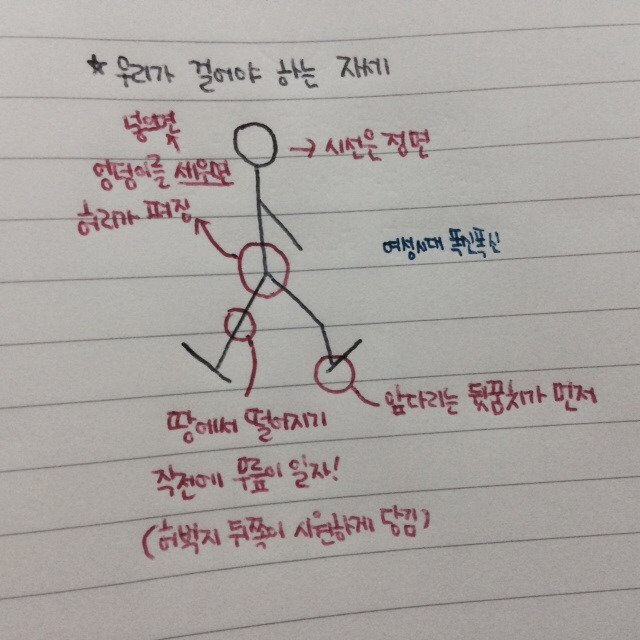 * 우리가 걸어야 하는 자세
엉덩이를 세우면
허리가 펴짐
→ 시선은 정면
여성시대 폭신폭신
앞다리는 뒷꿈치가 먼저
땅에서 떨어지기
직전에 무릎이 일자!
(허벅지 뒤쪽이 시원하게 당김)